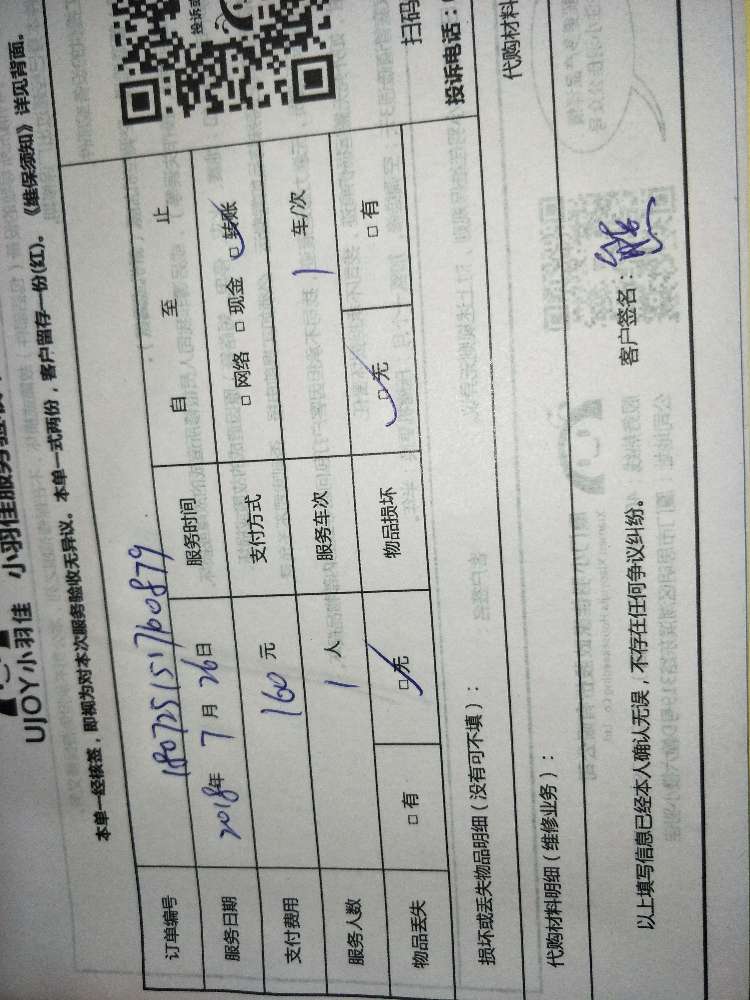 UJOY小羽佳 小羽佳服务验收
本单一经核签，即视为对本次服务验收无异议。本单一式两份，客户留存一份(红)。《维保须知》详见背面。
订单编号 180725151760879
服务日期 2018年7月26日 服务时间 自 至 止
支付费用 160元 支付方式 □网络 □现金 □转账
服务人数 1人 服务车次 1车/次
物品丢失 □有 □无 物品损坏 □无 □有
损坏或丢失物品明细（没有可不填）：
代购材料明细（维修业务）：
代购材料
以上填写信息已经本人确认无误，不存在任何争议纠纷。
客户签名：
投诉或
扫码
投诉电话：